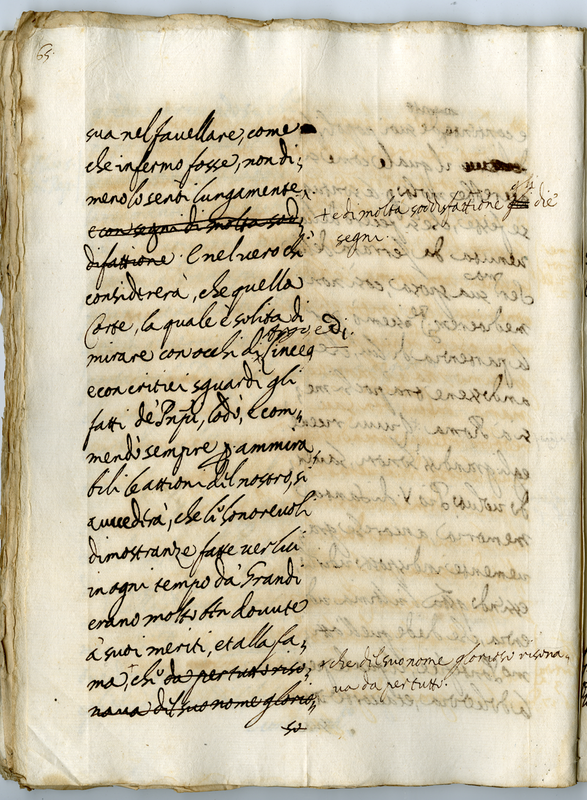 65.
sua nel favellare, come
che infermo fosse, non di:
meno lo sentì lungamente
e con segni di molta sod:
disfattione. E nel vero chi
+ e di molta soddisfattione gli die
segni.
considererà, che quella
Corte, la quale è solita di
mirare con occhi di lince
e con critici sguardi gli
fatti de' Pnpi, lodò, e com:
mendò sempre p ammira
bili le attioni del nostro, si
avvederà, che le honorevoli
dimostranze fatte verlui
in ogni tempo da' Grandi
erano molto ben dovute
à suoi meriti, et alla fa:
ma, che da per tutto riso:
nava del suo nome glorio:
che del suo nome glorioso risona:
va da per tutto.
so